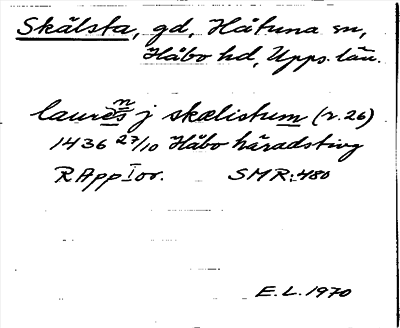 Skälsta, gd, Håtuna sn,
Håbo hd, Upps. län.
laurens j skælistum (r. 26)
1436 27/10 Håbo häradsting
RAppIor. SMR:480
E.L. 1970